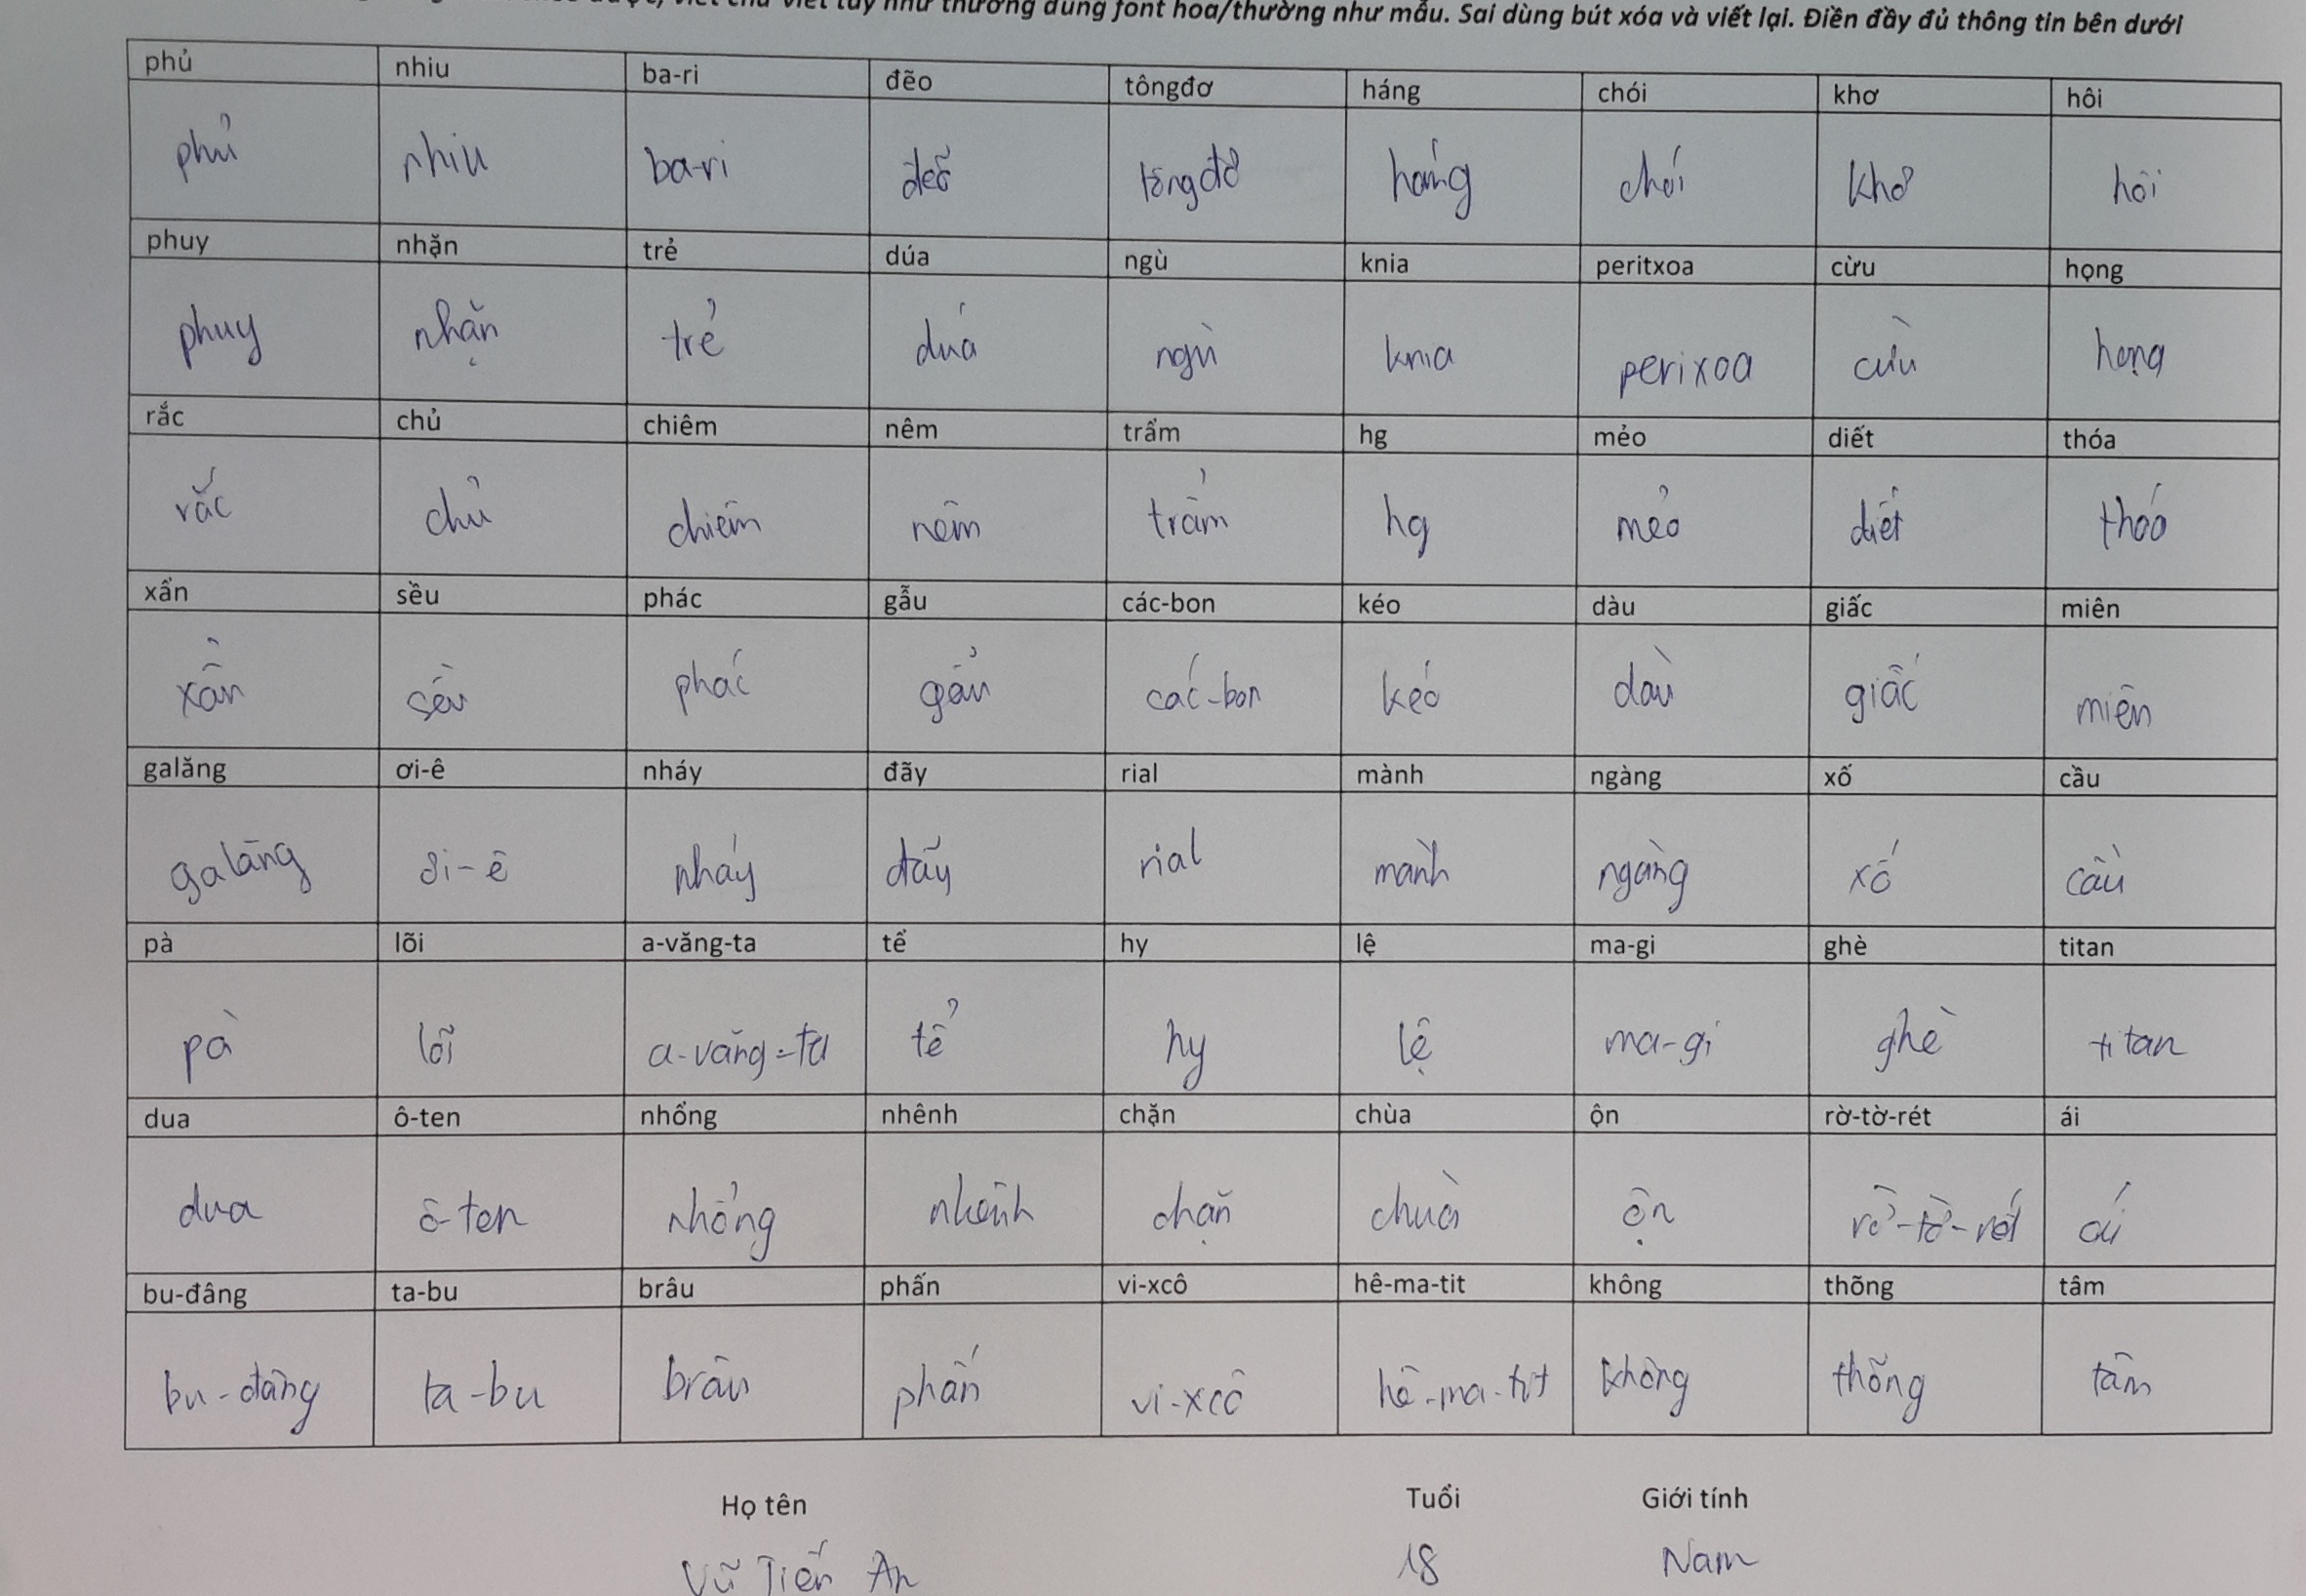 viết chữ viết tay như thường dùng font hoa/thường như mẫu. Sai dùng bút xóa và viết lại. Điền đầy đủ thông tin bên dưới
phủ nhiu ba-ri đẽo tôngđơ háng chói khơ hôi
phủ nhiu ba-ri đẽo tôngđơ háng chói khơ hôi
phuy nhặn trẻ dúa ngù knia peritxoa cừu họng
phuy nhặn trẻ dúa ngù knia perixoa cừu họng
rắc chủ chiêm nêm trẩm hg mẻo diết thóa
rắc chủ chiêm nêm trẩm hg mẻo diết thóa
xẩn sều phác gẫu các-bon kéo dàu giấc miên
xẩn sều phác gẩu các-bon kéo dàu giấc miên
galăng ơi-ê nháy đãy rial mành ngàng xố cầu
galăng ơi-ê nháy đãy rial mành ngàng xố cầu
pà lõi a-văng-ta tể hy lệ ma-gi ghè titan
pà lõi a-văng-ta tể hy lệ ma-gi ghè titan
dua ô-ten nhổng nhênh chặn chùa ộn rờ-tờ-rét ái
dua ô-ten nhổng nhênh chặn chùa ộn rờ-tờ-rét ái
bu-đâng ta-bu brâu phấn vi-xcô hê-ma-tit không thõng tâm
bu-đâng ta-bu brâu phấn vi-xcô hê-ma-tit không thõng tâm
Họ tên Tuổi Giới tính
Vũ Tiến An 18 Nam